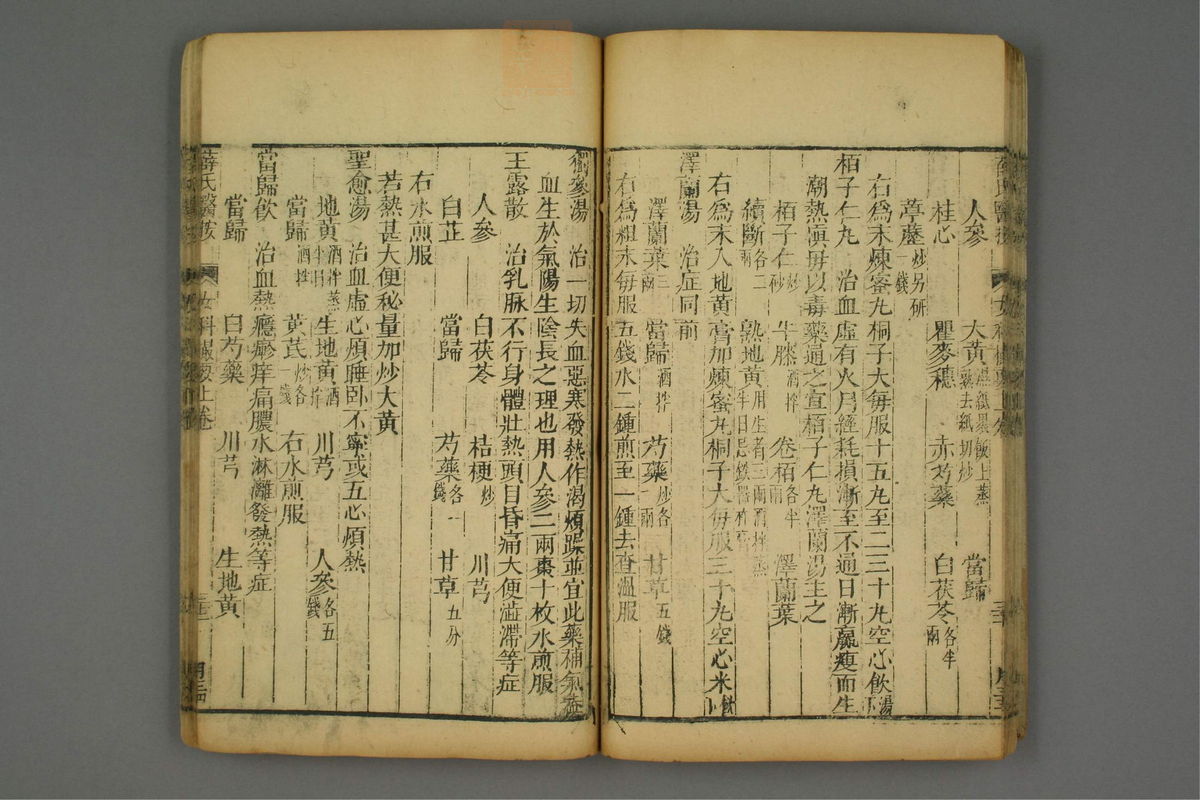 人參　大黃濕紙裹飯上蒸熟去紙切炒　當歸
桂心　瞿麥穗　赤芍藥　白茯苓各半兩
葶藶炒另研一錢
右爲末煉蜜丸桐子大每服十五丸至二三十丸空心飲湯下
栢子仁丸　治血虛有火月經耗損漸至不通日漸羸瘦而生
潮熱慎毋以毒藥通之宜栢子仁丸澤蘭湯主之
栢子仁炒　牛膝酒拌　卷栢各半兩　澤蘭葉
續斷各二兩　熟地黃用生者三兩酒拌蒸半日忌鐵器
右爲末入地黃膏加煉蜜丸桐子大每服三十丸空心米飲下
澤蘭湯　治症同前
澤蘭葉三兩　當歸酒拌　芍藥炒各一兩　甘草五錢
右爲粗末每服五錢水二鍾煎至一鍾去渣溫服
獨參湯　治一切失血惡寒發熱作渴煩躁並宜此藥補氣蓋
血生於氣陽生陰長之理也用人參二兩棗十枚水煎服
玉露散　治乳脉不行身體壯熱頭目昏痛大便澁滯等症
人參　白茯苓　桔梗炒　川芎
白芷　當歸　芍藥各一錢　甘草五分
右水煎服
若熱甚大便秘量加炒大黃
聖愈湯　治血虛心煩睡卧不寧或五心煩熱
地黃酒拌蒸半日　生地黃酒拌　川芎　人參各五錢
當歸酒拌　黃芪炒各一錢　右水煎服
當歸飲　治血熱癮疹痒痛膿水淋漓發熱等症
當歸　白芍藥　川芎　生地黃
薛氏醫按　女科撮要上卷